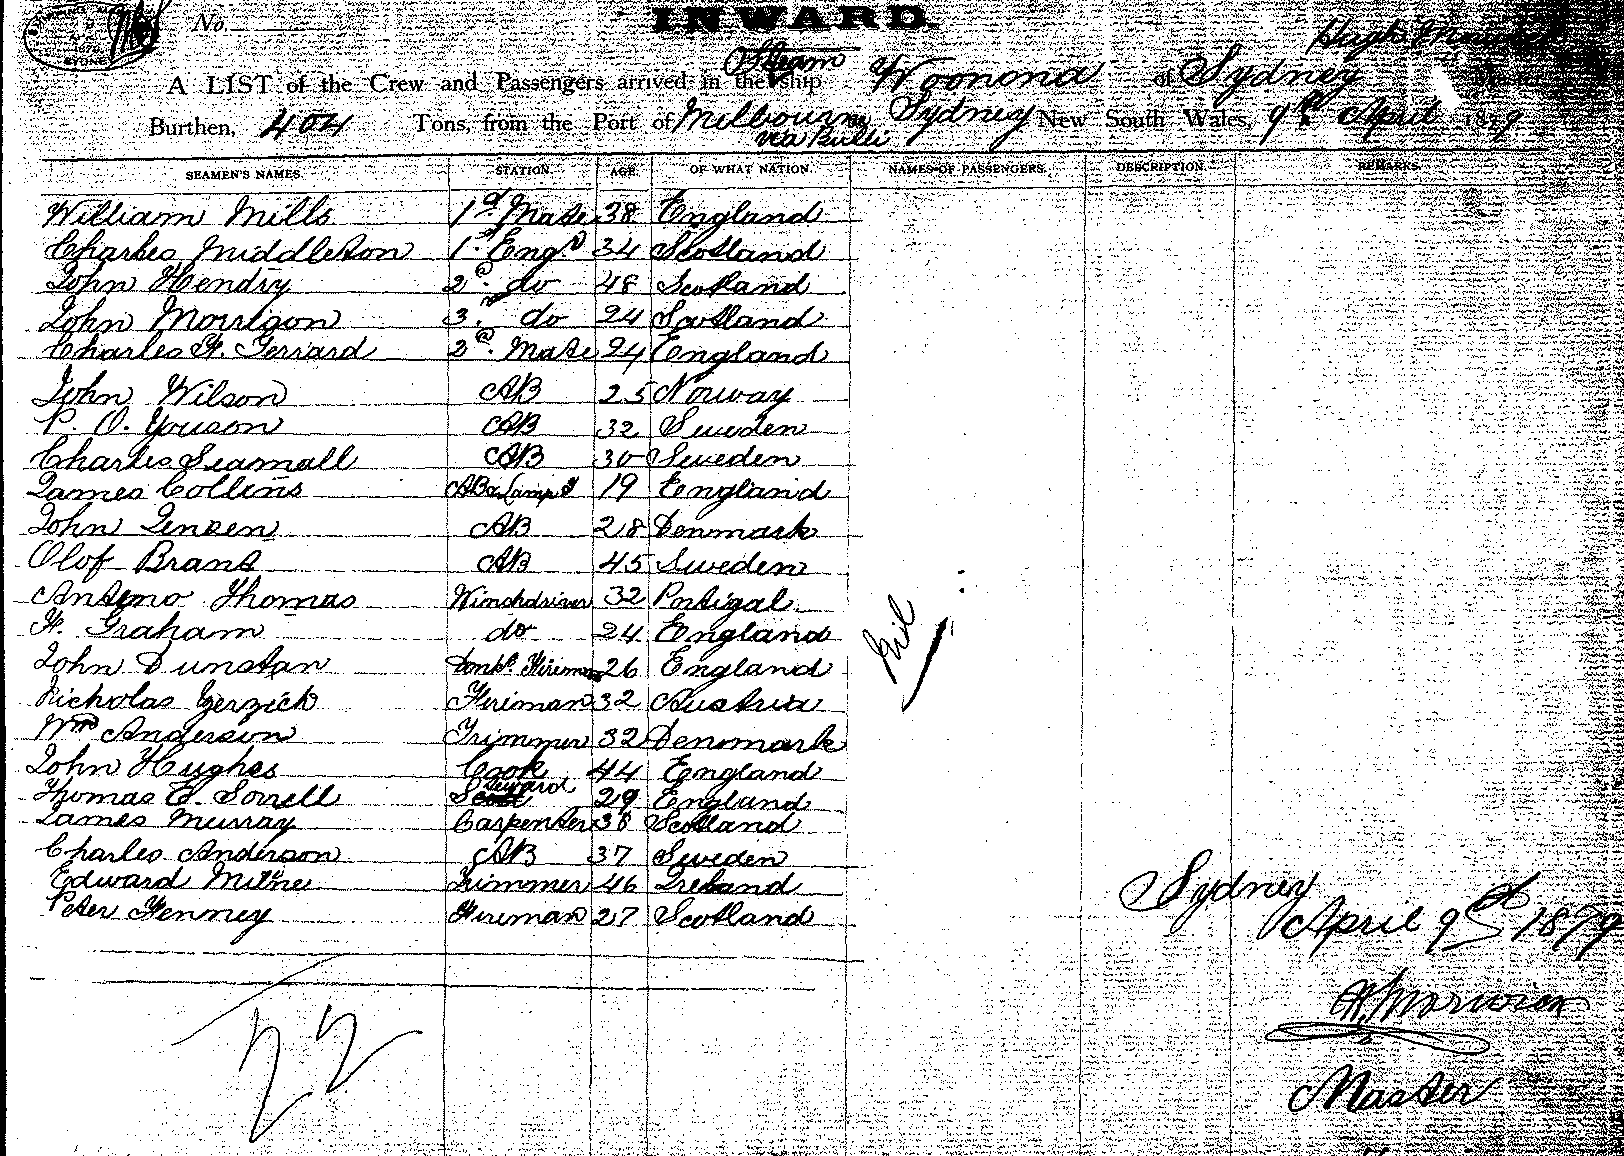 INWARD.
No.
Steam Hugh
A LIST of the Crew and Passengers arrived in the ship Woonona of Sydney
Burthen, 404 Tons, from the Port of Melbourne Sydney New South Wales, 9th April 1879
via Bulli
SEAMEN'S NAMES. STATION. AGE. OF WHAT NATION. NAMES OF PASSENGERS. DESCRIPTION. REMARKS.
William Mills 1st Mate 38 England
Charles Middleton 1st Engr 34 Scotland
John Hendry 2d do 48 Scotland
John Morrison 3r do 24 Scotland
Charles F. Gerrard 2d Mate 24 England
John Wilson AB 25 Norway
P. O. Youson AB 32 Sweden
Charles Seamall AB 30 Sweden
James Collins AB & Lamp T 19 England
John Jensen AB 28 Denmark
Olof Brand AB 45 Sweden
Antemo Thomas Winchdriver 32 Portigal
F. Graham do 24 England
John Dunstan Donky Fireman 26 England
Nicholas Gerzich Fireman 32 Austria
Wm Anderson Trimmer 32 Denmark
John Hughes Cook 44 England
Thomas E. Sorrell Steward 29 England
James Murray Carpenter 38 Scotland
Charles Anderson AB 37 Sweden
Edward Milne Trimmer 46 Ireland
Peter Fenney Fireman 27 Scotland
Nil
22
Sydney
April 9th 1879
Master